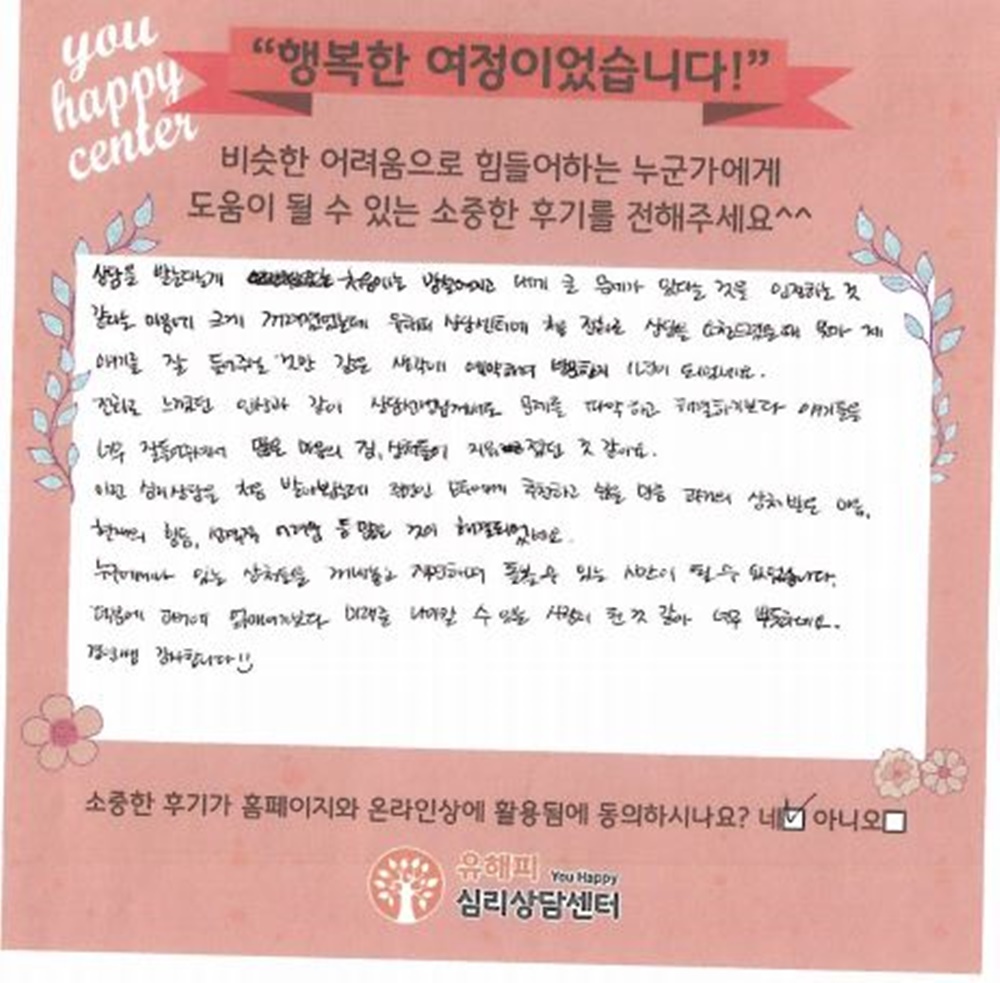 you
happy
center
“행복한 여정이었습니다!”
비슷한 어려움으로 힘들어하는 누군가에게
도움이 될 수 있는 소중한 후기를 전해주세요^^
상담을 받는다는게 처음에는 내게 큰 문제가 있다는 것을 인정하는 것
같다는 마음에 크게 꺼려졌었는데 유해피 상담센터에 첫 전화로 상담을 제
얘기를 잘 들어주실 것만 같은 생각에 예약하여 되었네요.
전화로 느꼈던 인상과 같이 상담선생님께서도 문제를 파악하고 해결하기보다 얘기들을
너무 잘들어주셔서 많은 마음의 짐, 상처들이 것 같아요.
이런 심리상담을 처음 받아봤는데 추천하고 싶을 만큼 과거의 상처받은 마음,
현재의 행동, 어려움 등 많은 것이 해결되었네요.
누구에게나 있는 상처들을 꺼내놓고 직면하며 돌볼 수 있는 시간이 될 수 있었습니다.
덕분에 과거에 얽매이기보다 미래로 나아갈 수 있는 사람이 된 것 같아 너무 뿌듯하네요.
감사합니다!!
소중한 후기가 홈페이지와 온라인상에 활용됨에 동의하시나요? 네 아니오
유해피 You Happy
심리상담센터